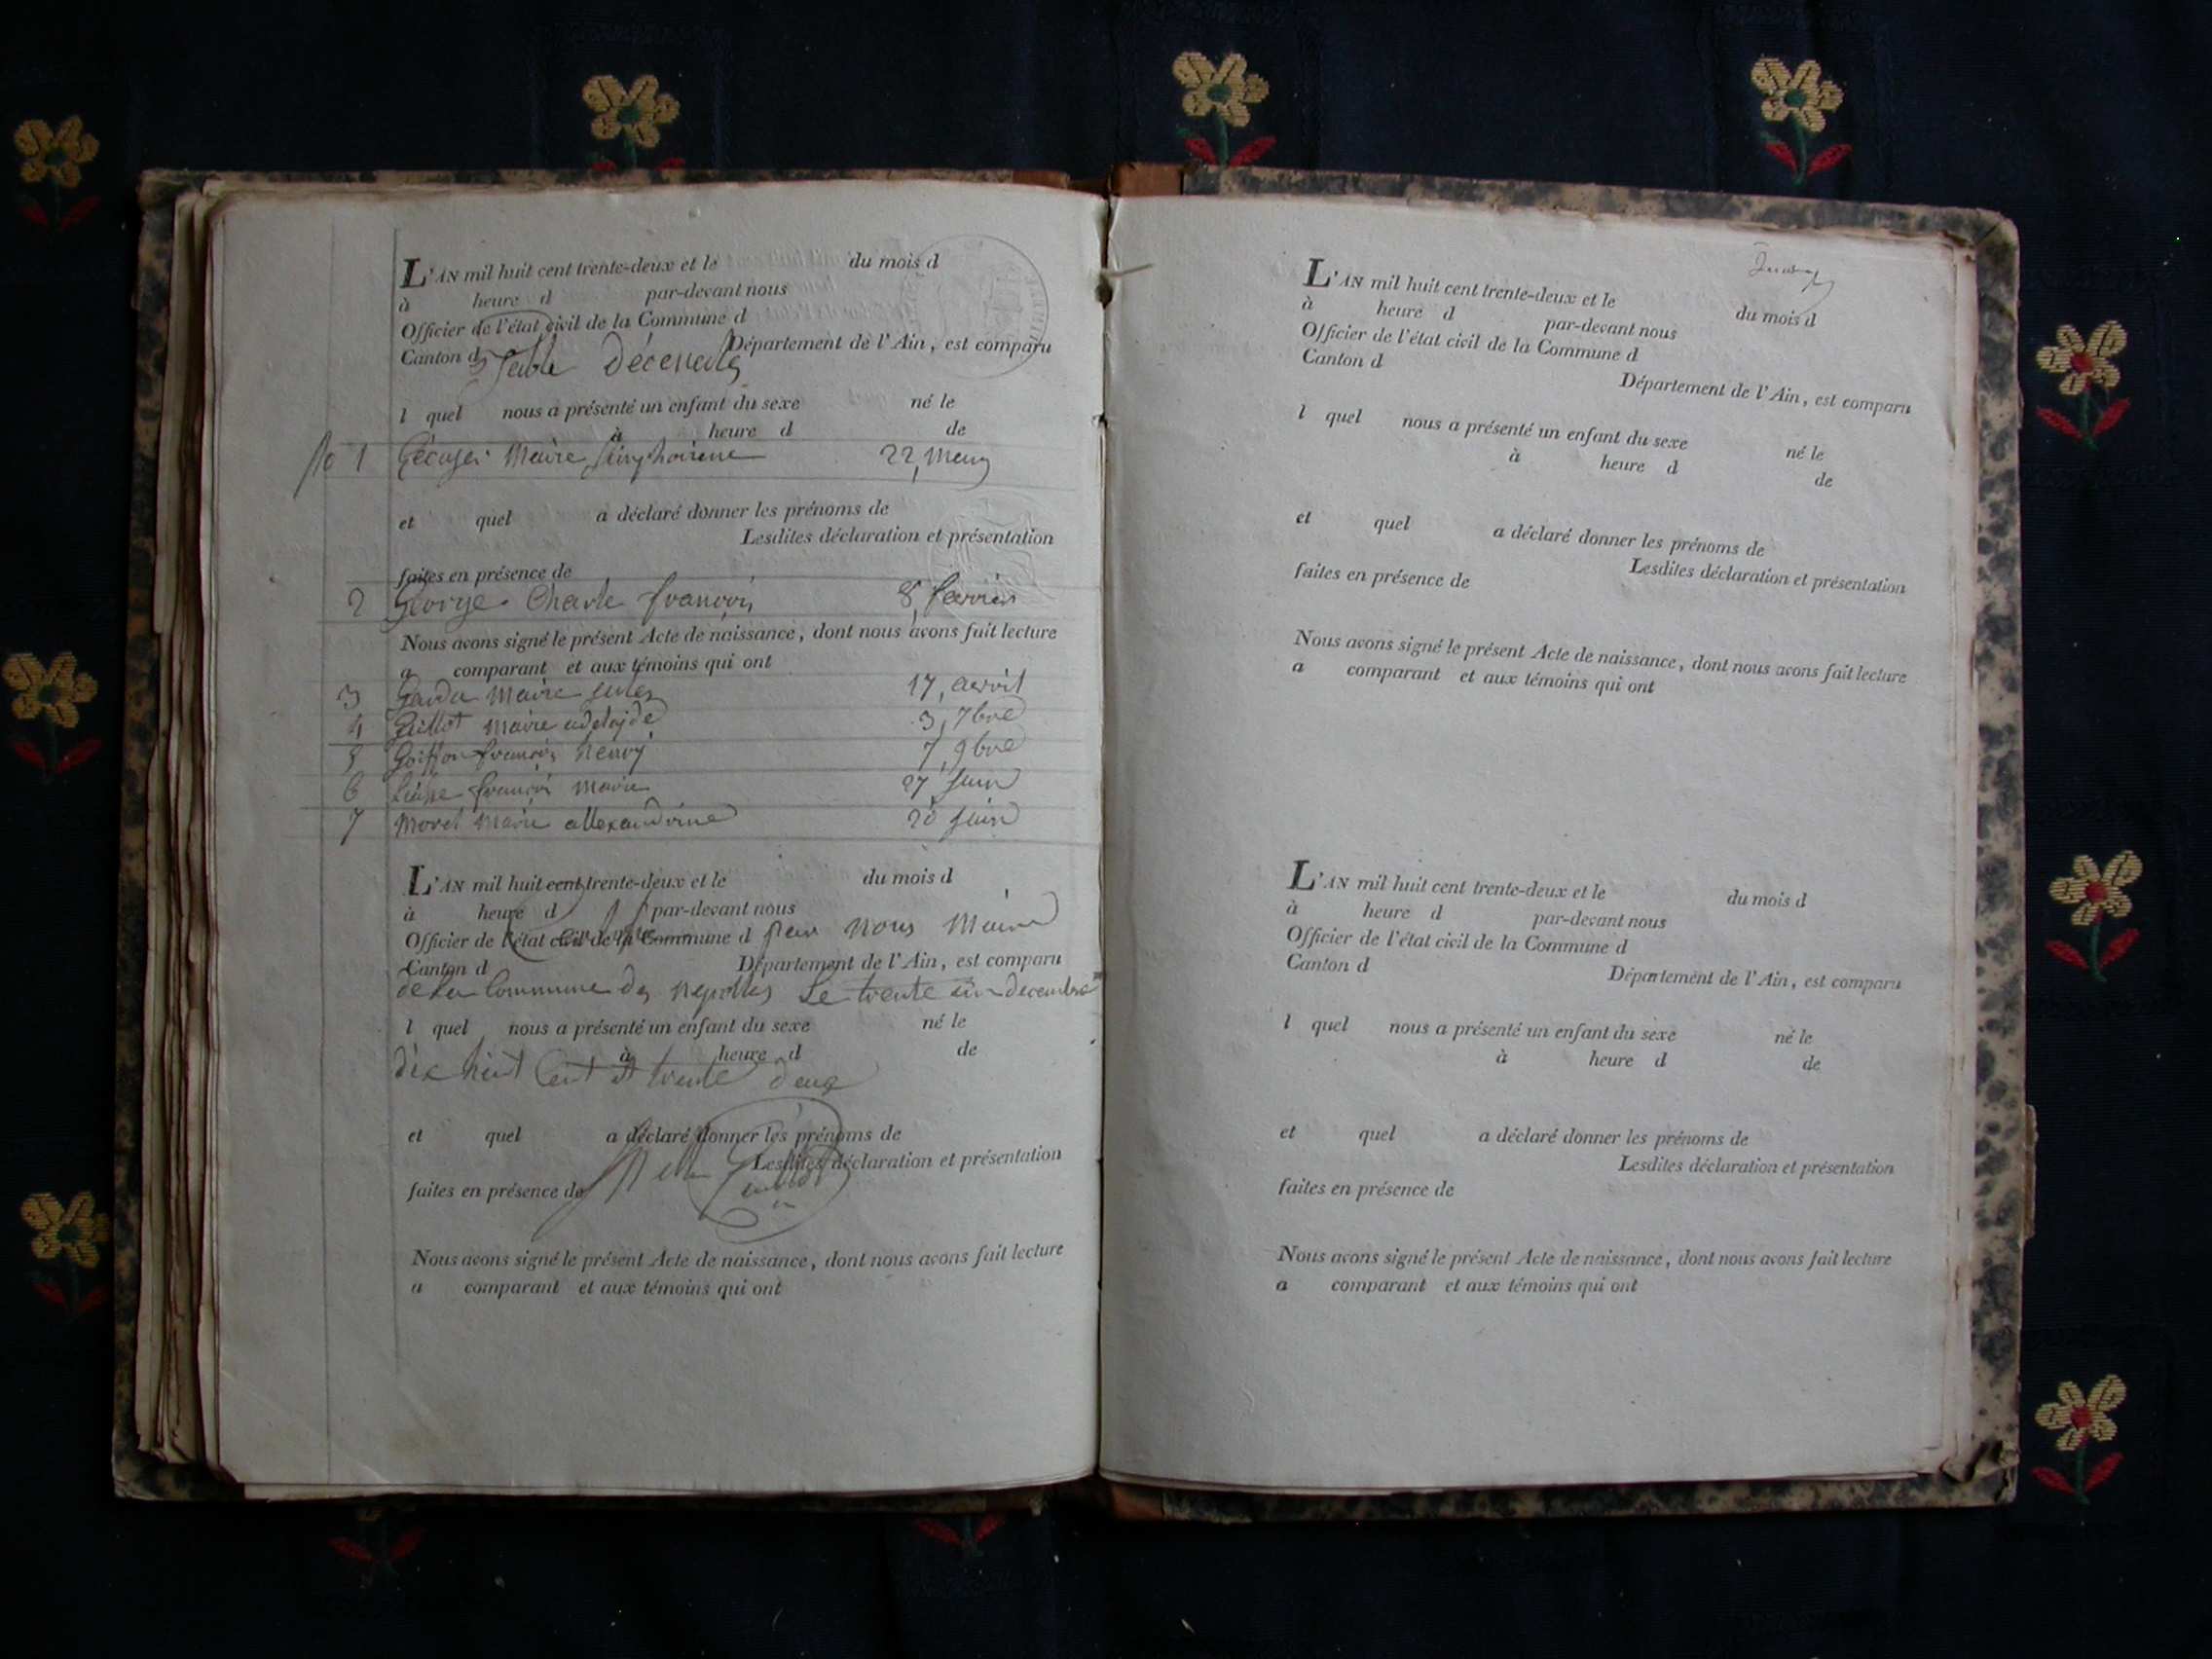 L'AN mil huit cent trente-deux et le du mois d
à heure d par-devant nous
Officier de l'état civil de la Commune d
Canton d Département de l'Ain, est comparu
Table
l quel nous a présenté un enfant du sexe né le
à heure d de
No 1 Marie 22,
et quel a déclaré donner les prénoms de
Lesdites déclaration et présentation
faites en présence de
2 George Charle françois 8,
Nous avons signé le présent Acte de naissance, dont nous avons fait lecture
a comparant et aux témoins qui ont
3 Marie 17, avril
4 Guillot Marie adelajde 3, 7bre
5 Goiffon françois henry 7, 9bre
6 françois Marie 27 juin
7 Morel Marie allexandrine 20 juin
L'AN mil huit cent trente-deux et le du mois d
à heure d par-devant nous
Officier de l'état civil de la Commune d par nous Maire
Canton d Département de l'Ain, est comparu
de la Commune des Le trente decembre
l quel nous a présenté un enfant du sexe né le
à heure d de
dix huit Cent et trente deux
et quel a déclaré donner les prénoms de
Lesdites déclaration et présentation
faites en présence de
Nous avons signé le présent Acte de naissance, dont nous avons fait lecture
a comparant et aux témoins qui ont
L'AN mil huit cent trente-deux et le du mois d
à heure d par-devant nous
Officier de l'état civil de la Commune d
Canton d Département de l'Ain, est comparu
l quel nous a présenté un enfant du sexe né le
à heure d de
et quel a déclaré donner les prénoms de
Lesdites déclaration et présentation
faites en présence de
Nous avons signé le présent Acte de naissance, dont nous avons fait lecture
a comparant et aux témoins qui ont
L'AN mil huit cent trente-deux et le du mois d
à heure d par-devant nous
Officier de l'état civil de la Commune d
Canton d Département de l'Ain, est comparu
l quel nous a présenté un enfant du sexe né le
à heure d de
et quel a déclaré donner les prénoms de
Lesdites déclaration et présentation
faites en présence de
Nous avons signé le présent Acte de naissance, dont nous avons fait lecture
a comparant et aux témoins qui ont